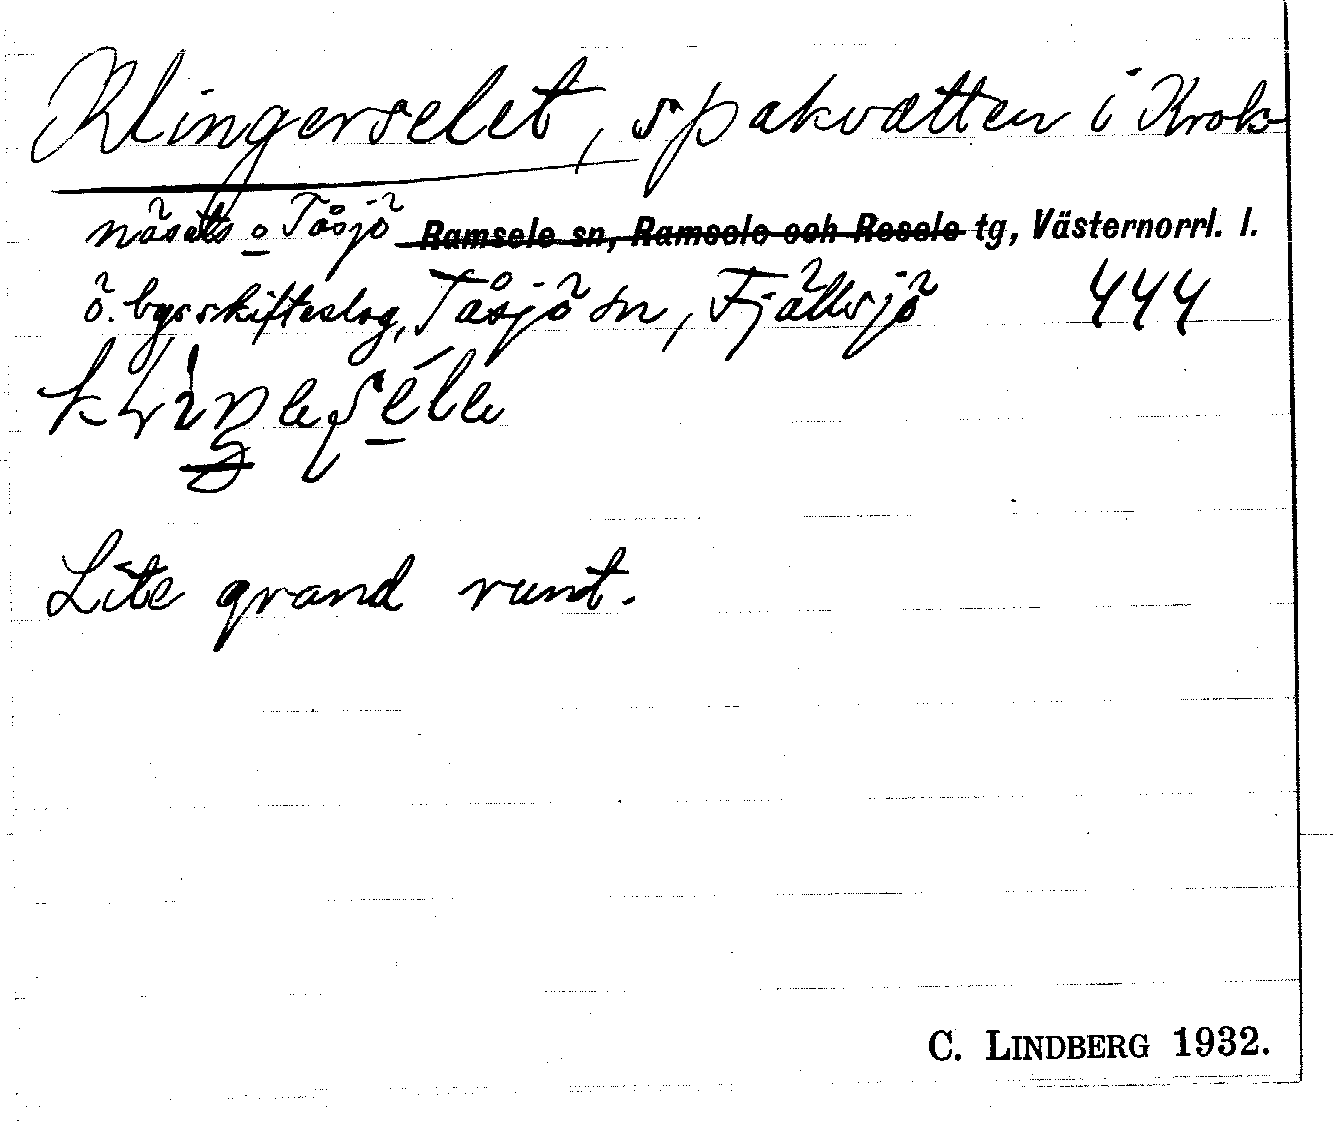 Klingerselet, spakvatten i Krok-
näsets o Tåsjö Ramsele sn, Ramsele och Resele tg, Västernorrl. l.
ö. byarskifteslag, Tåsjö sn, Fjällsjö 444
Lite grand runt.
C. LINDBERG 1932.